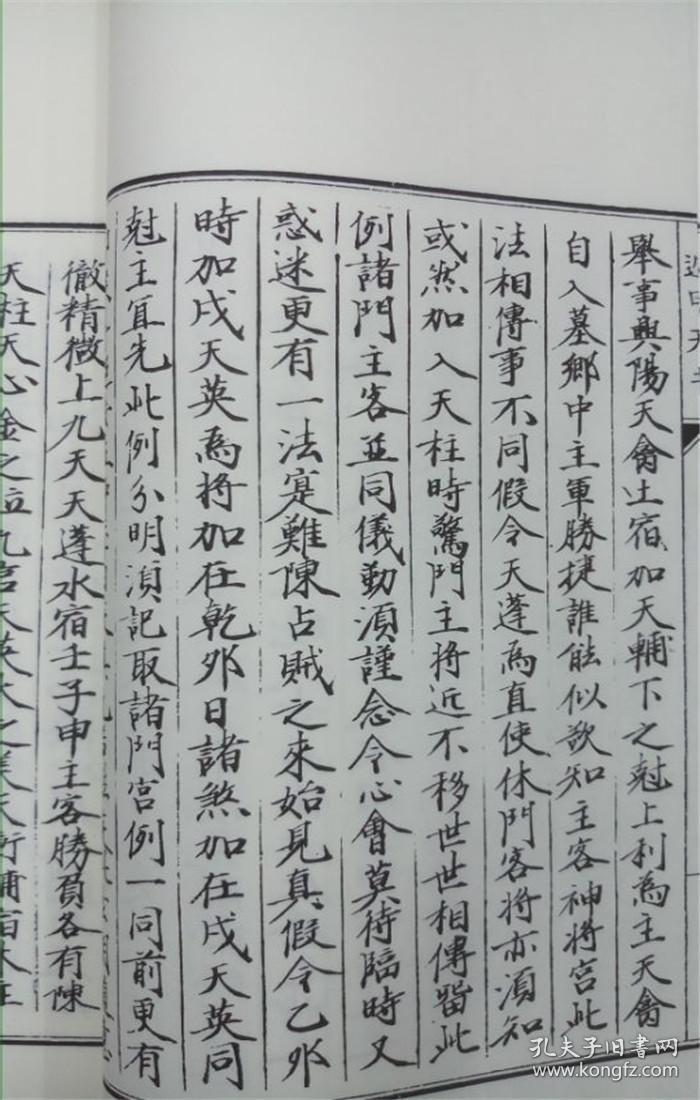 舉事興陽天禽土宿加天輔下之尅上利為主天禽
自入墓鄉中主軍勝捷誰能似欲知主客神將宮此
法相傳事不同假令天蓬為直使休門客將亦須知
或然加入天柱時驚門主將近不移世世相傳留此
例諸門主客並同儀動須謹念令心會莫待臨時又
惑迷更有一法寔難陳占賊之來始見真假令乙卯
時加戌天英為將加在乾卯日諸煞加在戌天英同
尅主宜先此例分明須記取諸門宮例一同前更有
徹精微上九天天蓬水宿壬子申主客勝負各有陳
天柱天心金之位九宮天英火之
孔夫子旧书网
www.kongfz.com